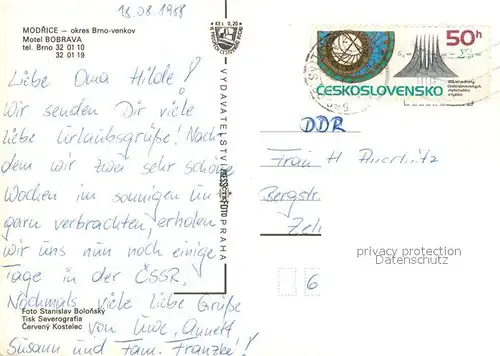 18.08.1988
MODŘICE — okres Brno-venkov
Motel BOBRAVA
tel. Brno 32 01 10
32 01 19
Kčs 0,20
50h
ČESKOSLOVENSKO
Liebe Oma Hilde!
Wir senden Dir viele
liebe Urlaubsgrüße! Nach
dem wir zwei sehr schöne
Wochen im sonnigen Un
garn verbrachten, erholen
wir uns nun noch einige
Tage in der ČSSR.
Nochmals viele liebe Grüße
von Uwe, Annett
Susann und Fam. Franzke!
VYDAVATELSTVÍ PRESSFOTO PRAHA
DDR
Frau H Auerbitz
Bergstr.
Zei
6
privacy protection
DAMALS.com
Foto Stanislav Boloňský
Tisk Severografia
Červený Kostelec